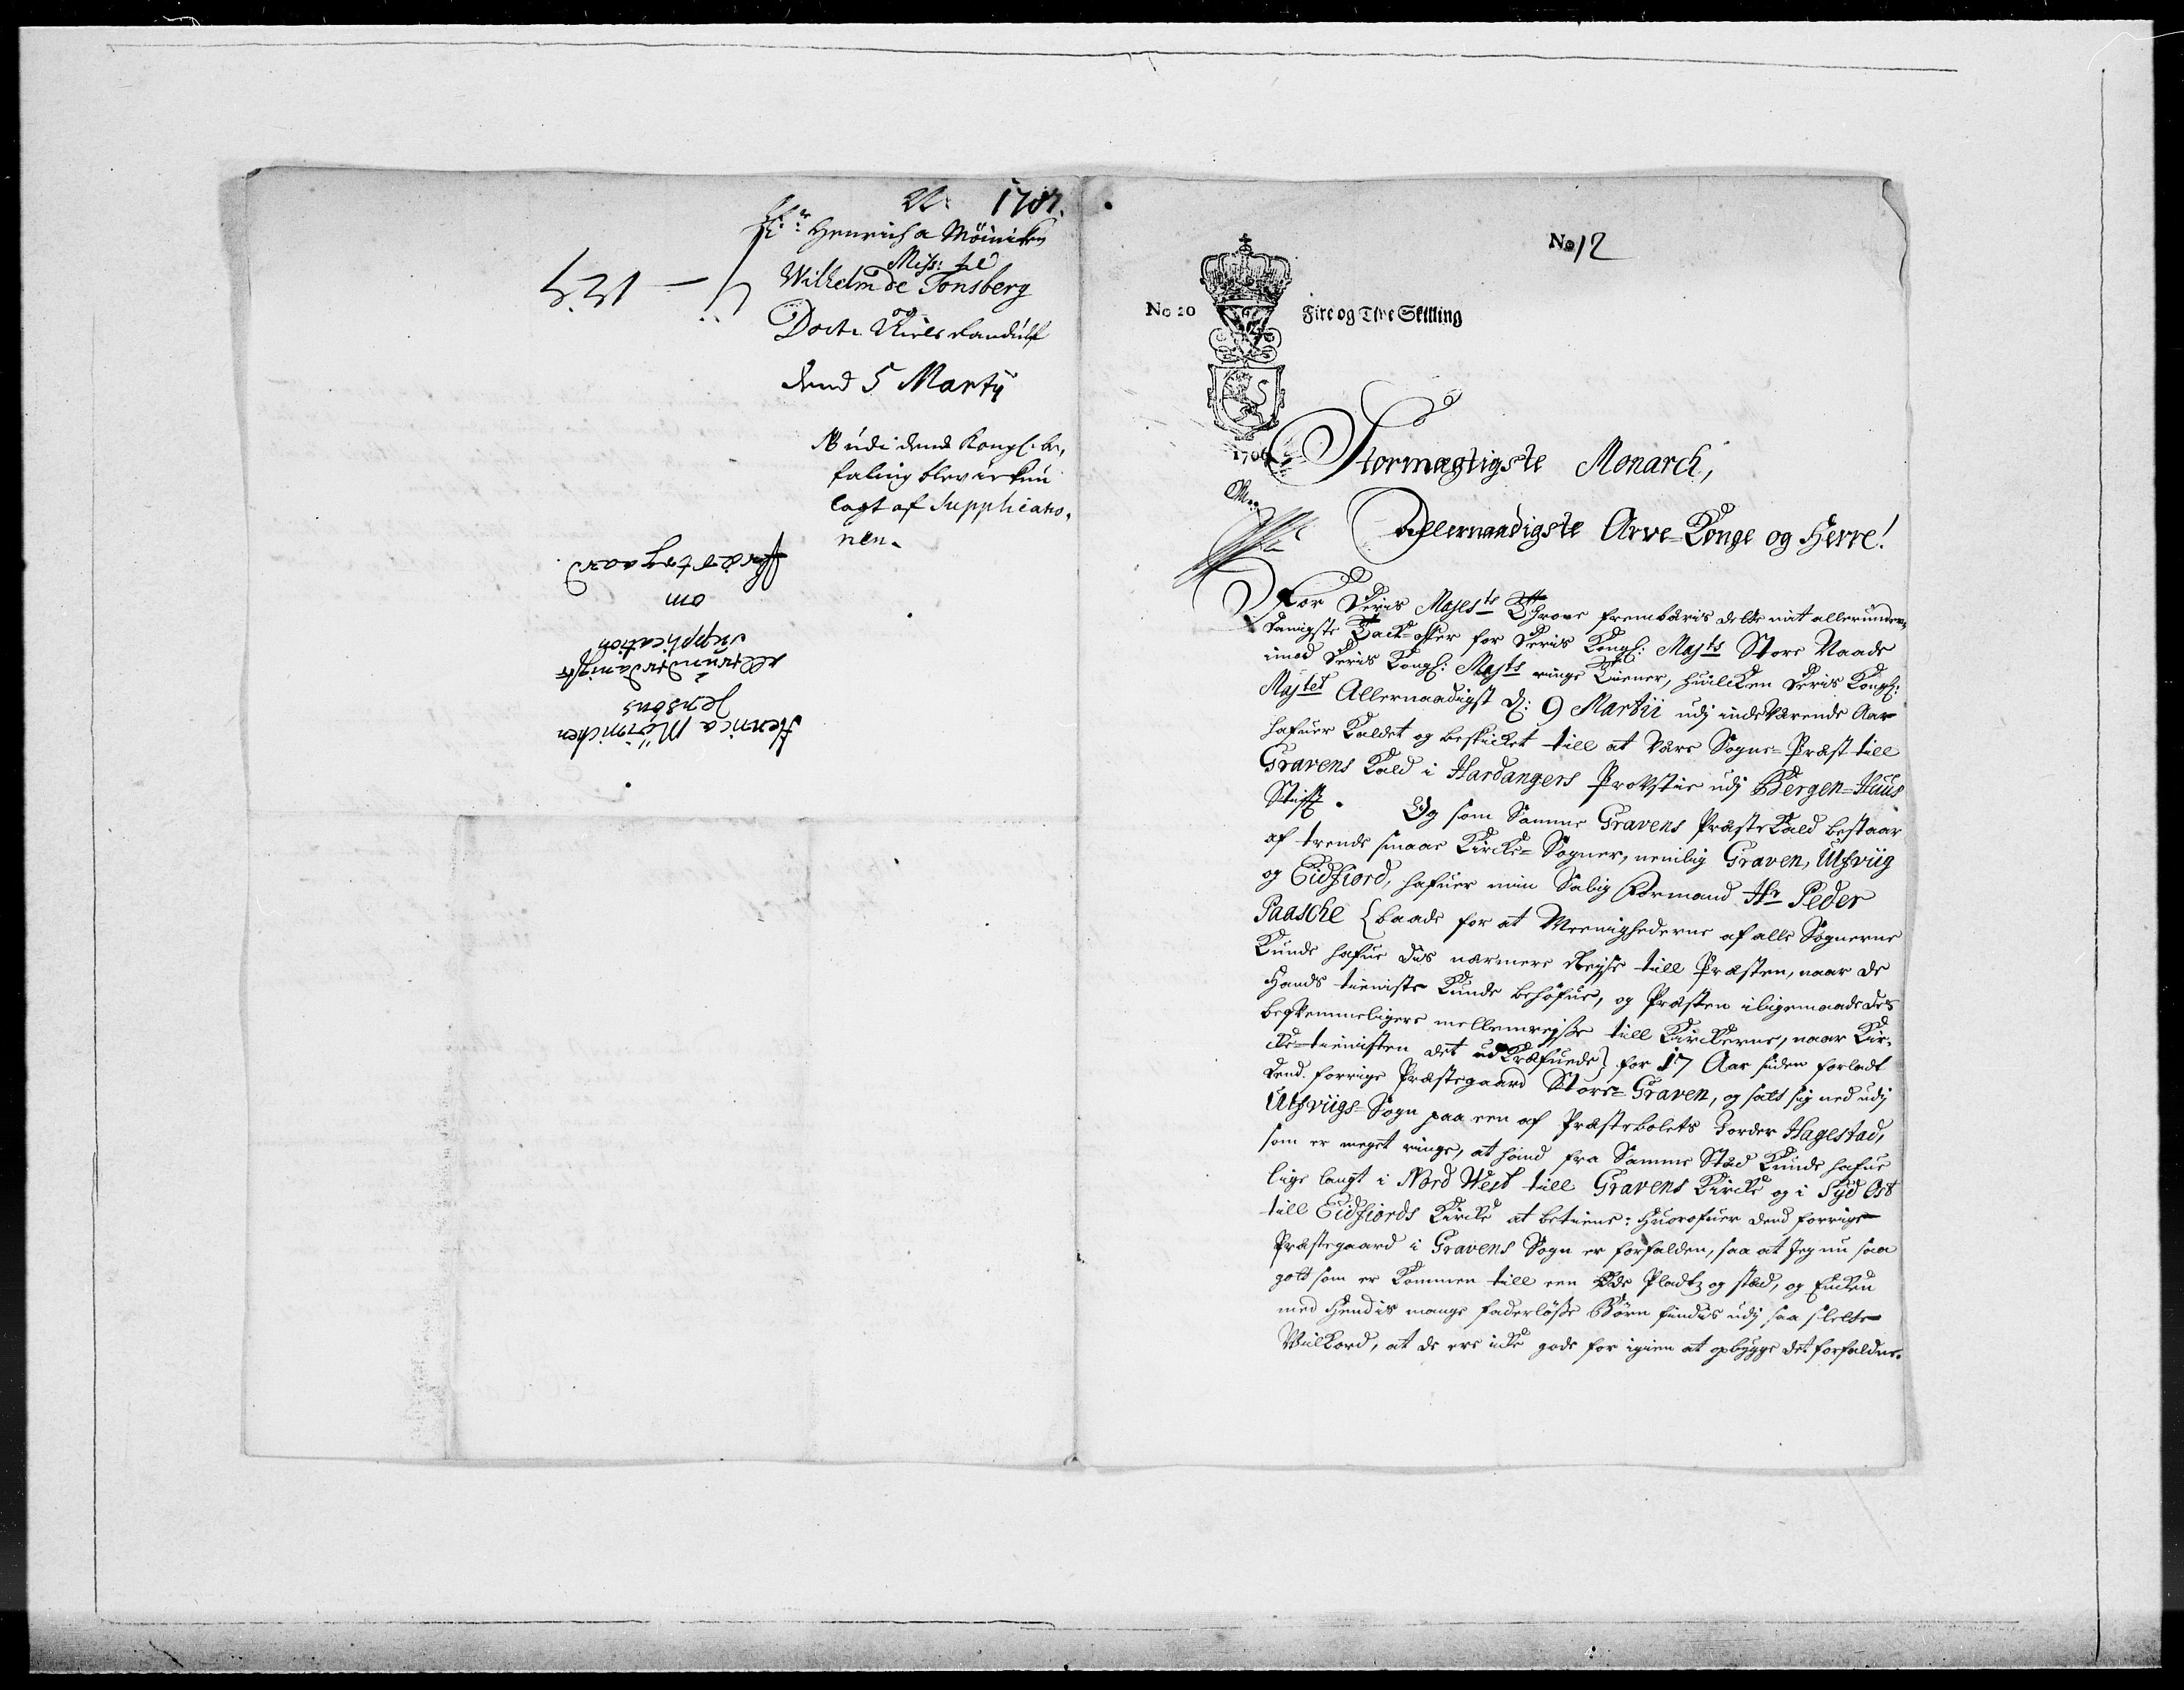 1707.
Hr: Henrich a Möinichen
Miss: til
Wilhelm de Tonsberg
og
Doct: Niels Randulf
dend 5 Martij
NB udi dend Kongl: be,
faling blev ar Kun
lagt af Supplicatio,
nen.
531
Henric a Möinichen
Jensøns
allerunderdanigste
Supplication
om
No 12
No 20 Fire og Tive Skilling
1706
Stormægtigste Monarch,
Allernaadigste Arve-Konge og Herre!
For Deris Majests Throne frembæris dette mit allerunder,
danigste Tack-offer for Deris Kongl: Majts Store Naade
imod Deris Kongl: Majts ringe Tiener, huilcken Deris Kongl:
Majtet Allernaadigst d: 9 Martii udj indeværende Aar
hafuer Kaldet og beskicket till at være Sogne-Præst till
Gravens Kald i Hardangers Provstie udj Bergen-Huus
Stift. Og som Samme Gravens PræsteKald bestaar
af trende smaae Kircke-Sogner, nemlig Graven, Ulfviig
og Eidfiord, hafuer min Salig Formand Hr Peder
Paasche {baade for at Meenighederne af alle Sognerne
Kunde hafue dis nærmere Reyse till Præsten, naar de
Hands tieniste Kunde behøfue, og Præsten iligemaade des
beqvemmeligere mellemrejse till Kirckerne, naar Kir,
cke-tienisten det udKræfuede} for 17 Aar siden forladt
dend forrige Præstegaard Store-Graven, og satt sig ned udj
Ulfviigs-Sogn paa een af Præstebolets Jorder Hagestad,
som er meget ringe, at hand fra Samme Stæd Kunde hafue
lige langt i Nord West till Gravens Kircke og i Syd Ost
till Eidfiords Kircke at betiene: Huorofuer dend forrige
Præstegaard i Gravens Sogn er forfalden, saa at Jeg nu saa
gott som er Kommen till een øde Pladtz og stæd, og Encken
med Hendis mange faderløse Børn findis udj saa slette
Vilkord, at de ere icke gode for igien at opbygge det forfaldne.